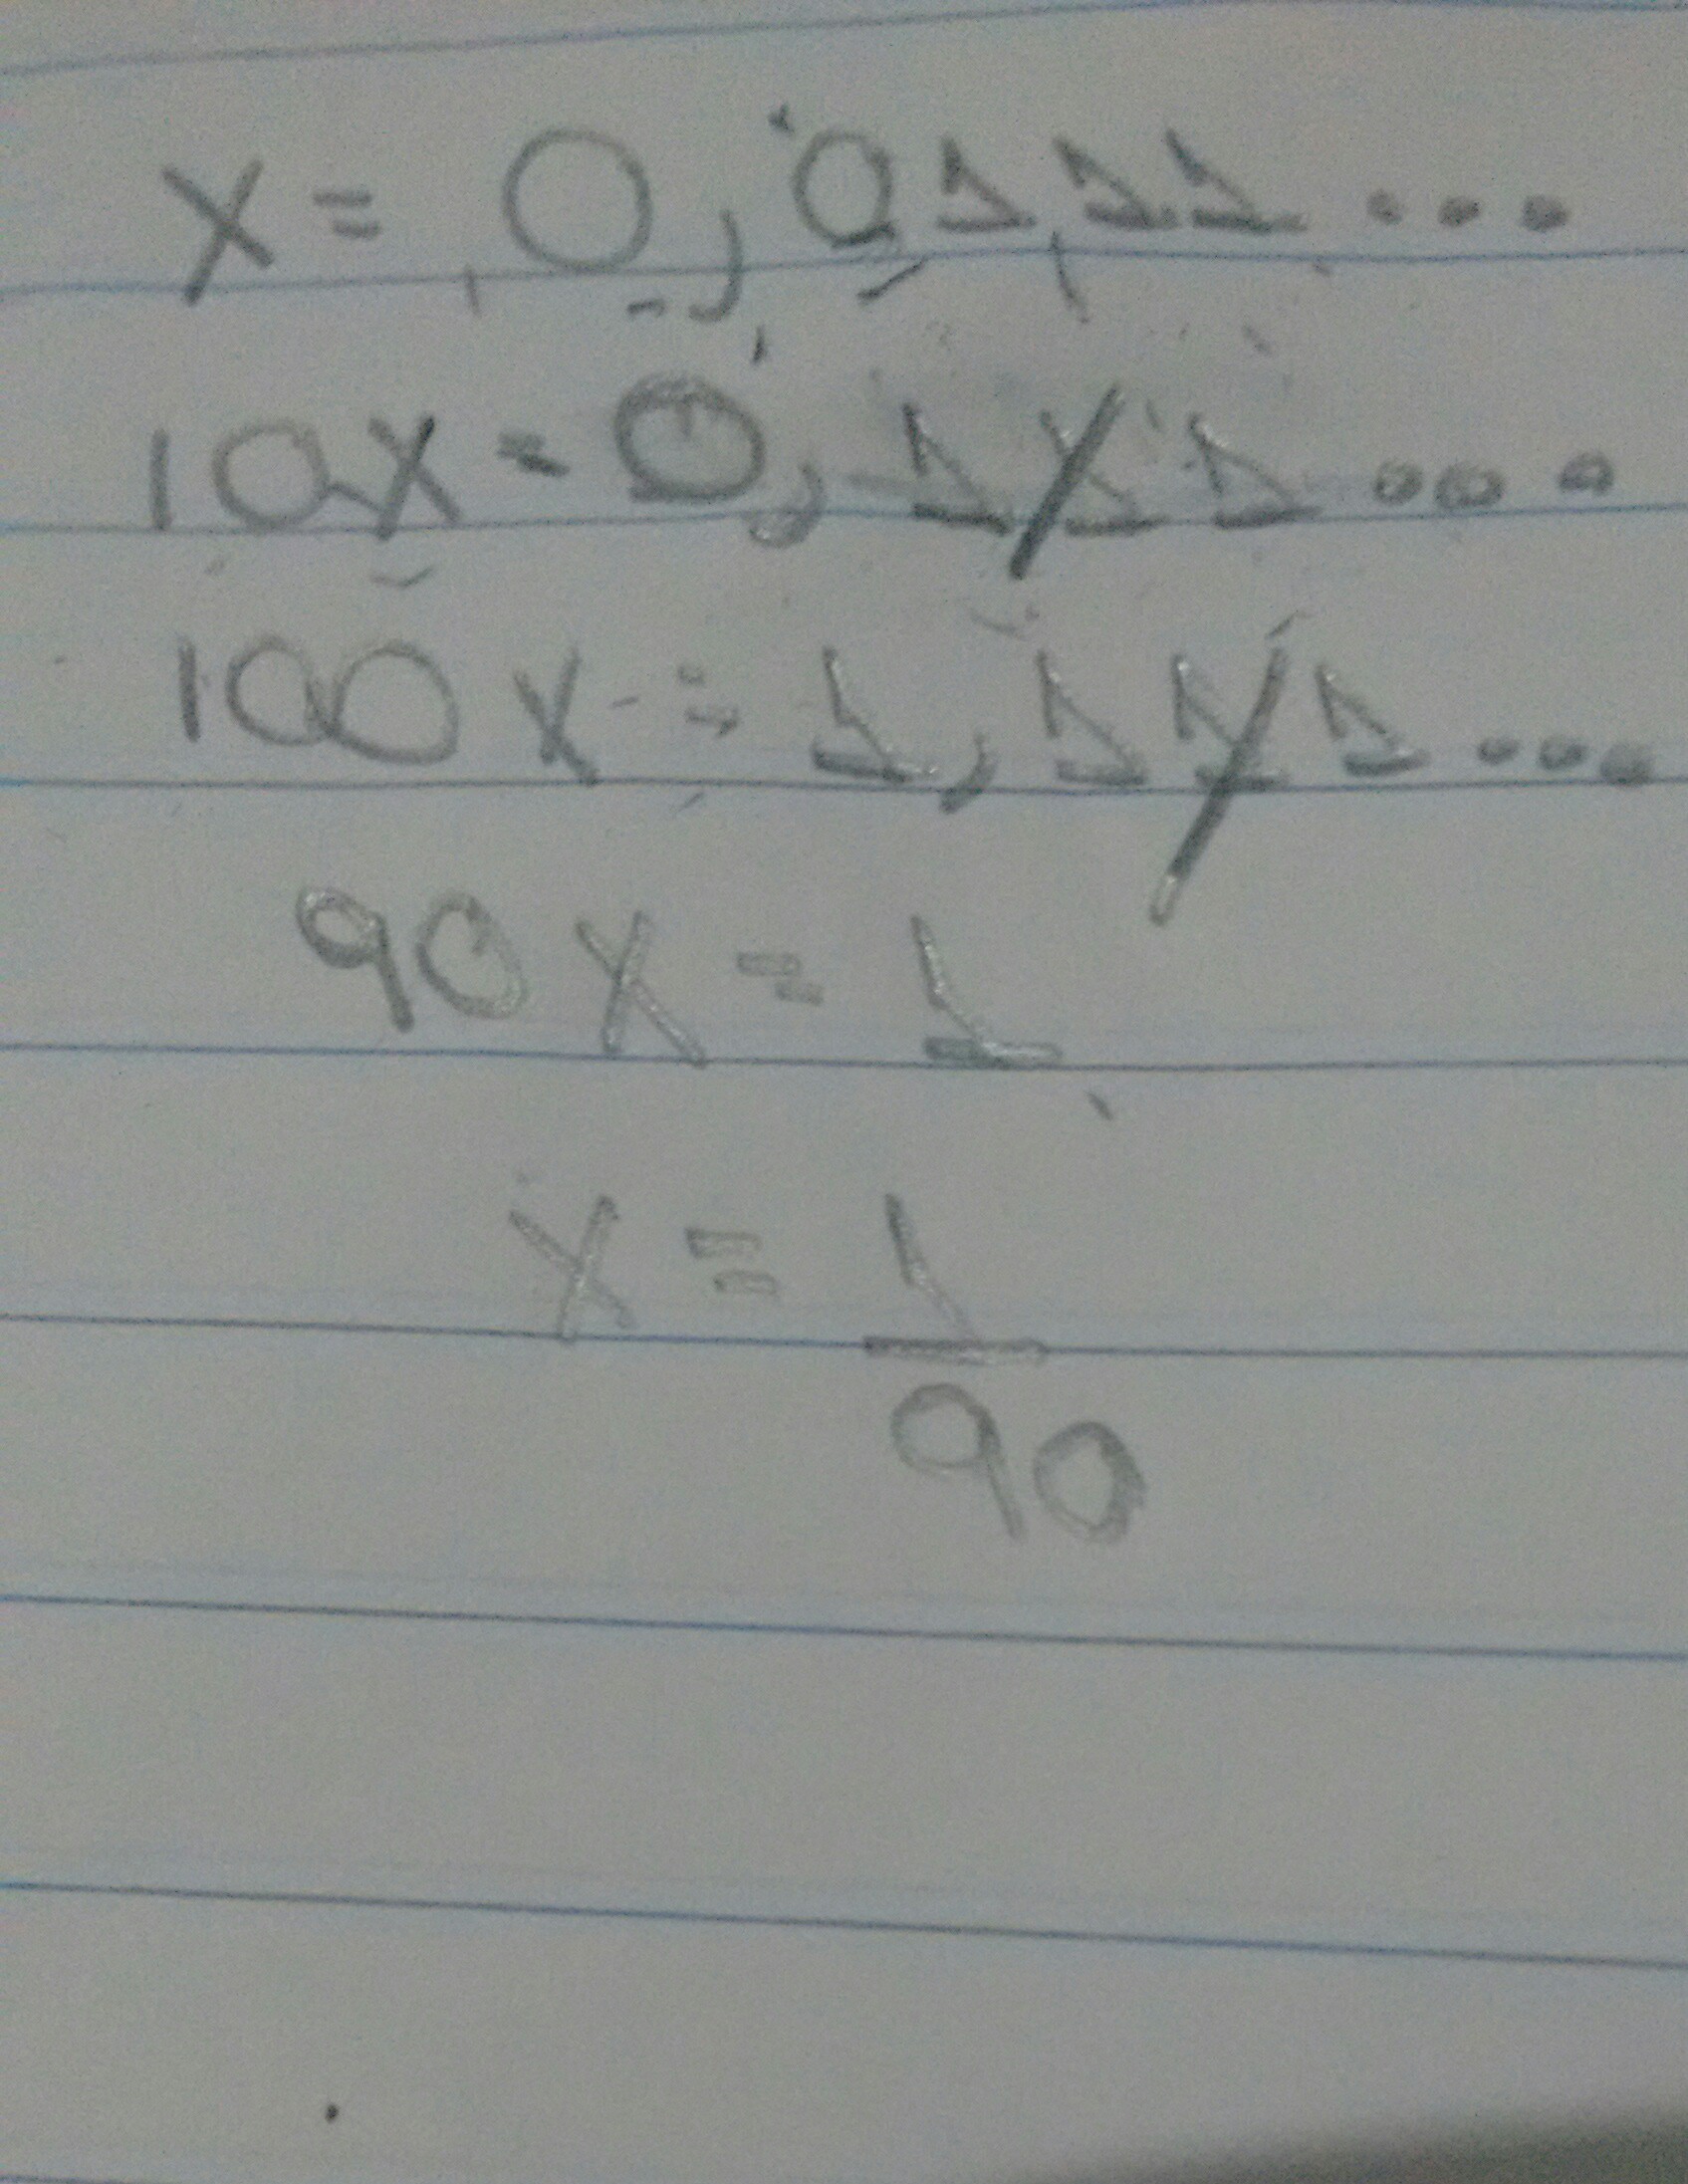 x = 0,0111...
10x = 0,111...
100x = 1,111...
90x = 1
x = 1
90